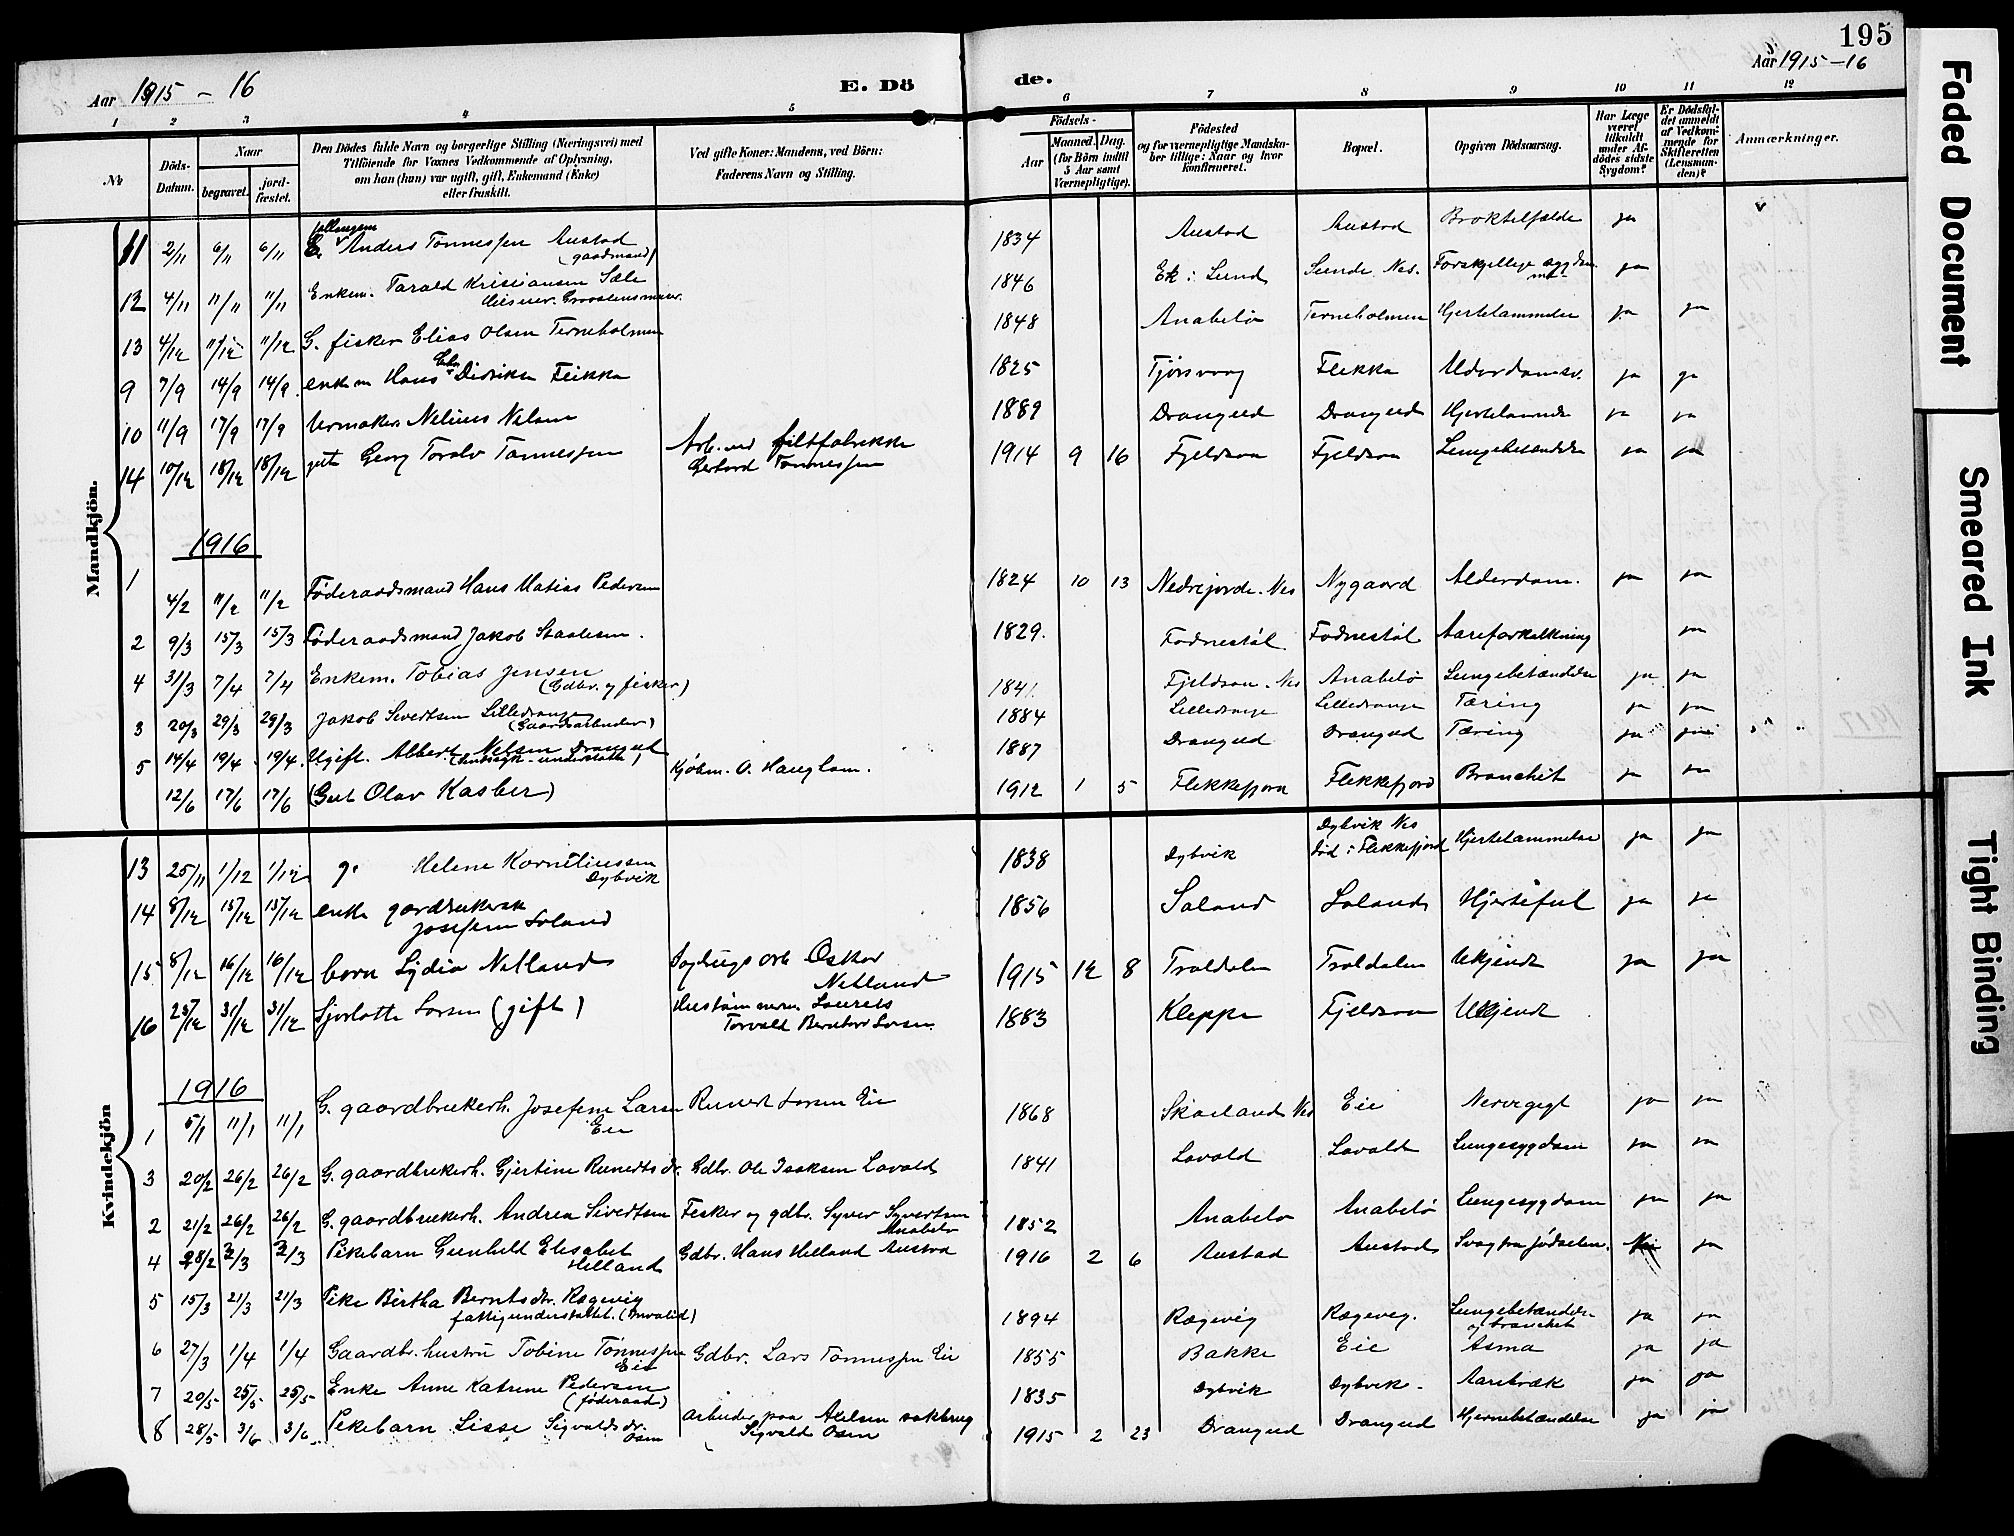 195
Aar 1915 - 16
E. Dö
de.
Aar 1915 - 16
1 2 3 4 5 6 7 8 9 10 11 12
№
Döds-Datum.
Naar
begravet.
jord-fæstet.
Den Dödes fulde Navn og borgerlige Stilling (Næringsvei) med
Tilföiende for Voxnes Vedkommende af Oplysning,
om han (hun) var ugift, gift, Enkemand (Enke)
eller fraskilt.
Ved gifte Koner: Mandens, ved Börn:
Faderens Navn og Stilling.
Födsels-
Aar
Maaned.
Dag.
(for Börn indtil
5 Aar samt
Værnepligtige).
Födested
og for værnepligtige Mandska-
ber tillige: Naar og hvor
konfirmeret.
Bopæl.
Opgiven Dödsaarsag.
Har Læge
været
tilkaldt
under Af-
dödes sidste
Sygdom?
Er Dödsfal-
det anmeldt
af Vedkom-
mende for
Skifteretten
(Lensman-
den)?
Anmærkninger.
Mandkjön.
11 2/11 6/11 6/11 Anders Tønnessen Austad (gaardmand) 1834 Austad Austad ja
12 4/11 11/11 11/11 Enkem. Tarald Krisiansen Sæle 1846 Lund Sunde Nes. Forskjellige sygdom ja
13 4/12 11/12 11/12 G. fisker Elias Olsen Terneholmen 1848 Anabelø Terneholmen Hjertelammelse ja ja
9 7/9 14/9 14/9 enkem Hans Didriksen Flikka 1825 Tjørsvaag Flikka ja ja
10 11/9 17/9 17/9 Urmaker Nelius Nelsen 1889 Drangeid Drangeid Hjertelammelse ja ja
14 10/12 18/12 18/12 gut Georg Toralv Tønnessen Arb. ved filtfabrikke Gerhard Tønnessen 1914 9 16 Fjeldsaa Fjeldsaa Lungebetændelse ja ja
1916
1 4/2 11/2 11/2 Føderaadsmand Hans Matias Pedersen 1824 10 13 Nedrejorde. Nes Nygaard Alderdom. ja ja
2 9/3 15/3 15/3 Føderaadsmand Jakob Staalesen. 1829. Fodnestøl Fodnestøl Aareforkalkning ja
4 31/3 7/4 7/4 Enkem. Tobias Jensen (Gdbr. og fisker) 1841. Fjeldsaa. Nes Anabelø Lungebetændelse ja ja
3 20/3 29/3 29/3 Jakob Sivertsen Lilledrange (Gaardsarbeider) 1884 Lilledrange Lilledrange Tæring ja ja
5 14/4 19/4 19/4 Ugift. Albert Nelsen Drangeid 1887 Drangeid Drangeid Tæring ja ja
12/6 17/6 17/6 (Gut Olav Kasber) Kjøbm. O. Hauglam. 1912 1 5 Flekkefjord Flekkefjord Bronchit ja ja
Kvindekjön
13 25/11 1/12 1/12 g. Helene Korneliussen Dybvik 1838 Dybvik Dybvik Nes Død i Flekkefjord Hjertelammelse ja ja
14 8/12 15/12 15/12 enke Josefine Soland 1856 Soland Soland Hjertefeil ja ja
15 8/12 16/12 16/12 barn Lydia Netland Oskar Netland 1915 12 8 Troldalen Troldalen Ukjendt ja ja
16 25/12 31/12 31/12 Sjarlotte Larsen (gift) Laurets Torvald Bernhard Larsen 1883 Kleppe Fjeldsaa Ukjendt
1916
1 5/1 11/1 11/1 G. gaardbrukerh. Josefine Larsen Eie Reinert Larsen Eie 1868 Skaaland Nes Eie Nervegigt ja ja
3 20/2 26/2 26/2 G. gaardbrukerh. Gjertine Reinertsdr. Gdbr. Ole Isaksen Lavold 1841 Lavold Lavold Lungesygdom ja ja
2 21/2 26/2 26/2 G. gaardbrukerh. Andrea Sivertsen Fisker og gdbr. Syver Syvertsen Anabelø 1852 Anabelø Anabelø Lungesygdom ja ja
4 28/2 2/3 2/3 Pikebarn Gunhild Elisabet Helland Gdbr. Hans Helland Austad 1916 2 6 Austad Austad Svag fra fødselen. Nei ja
5 15/3 21/3 21/3 Pike Birtha Berntsdr. Rægevig fattigunderstøttet. (Invalid) 1894 Rægevig Rægevig. Lungebetændelse og bronchit ja ja
6 27/3 1/4 1/4 Gaardbr. hustru Tobine Tønnessen Eie Gdbr. Lars Tønnessen Eie 1855 Bakke Eie Asma ja ja
7 20/5 25/5 25/5 Enke Anne Katrine Pedersen (føderaad) 1835 Dybvik Dybvik. Aarebræk ja ja
8 28/5 3/6 3/6 Pikebarn Lisse Sigvaldsdr. Osen arbeider paa Axelsen sakbrug Sigvald Osen 1915 2 23 Drangeid Drangeid Hjernebetændelse ja ja
Faded Document
Smeared Ink
Tight Binding